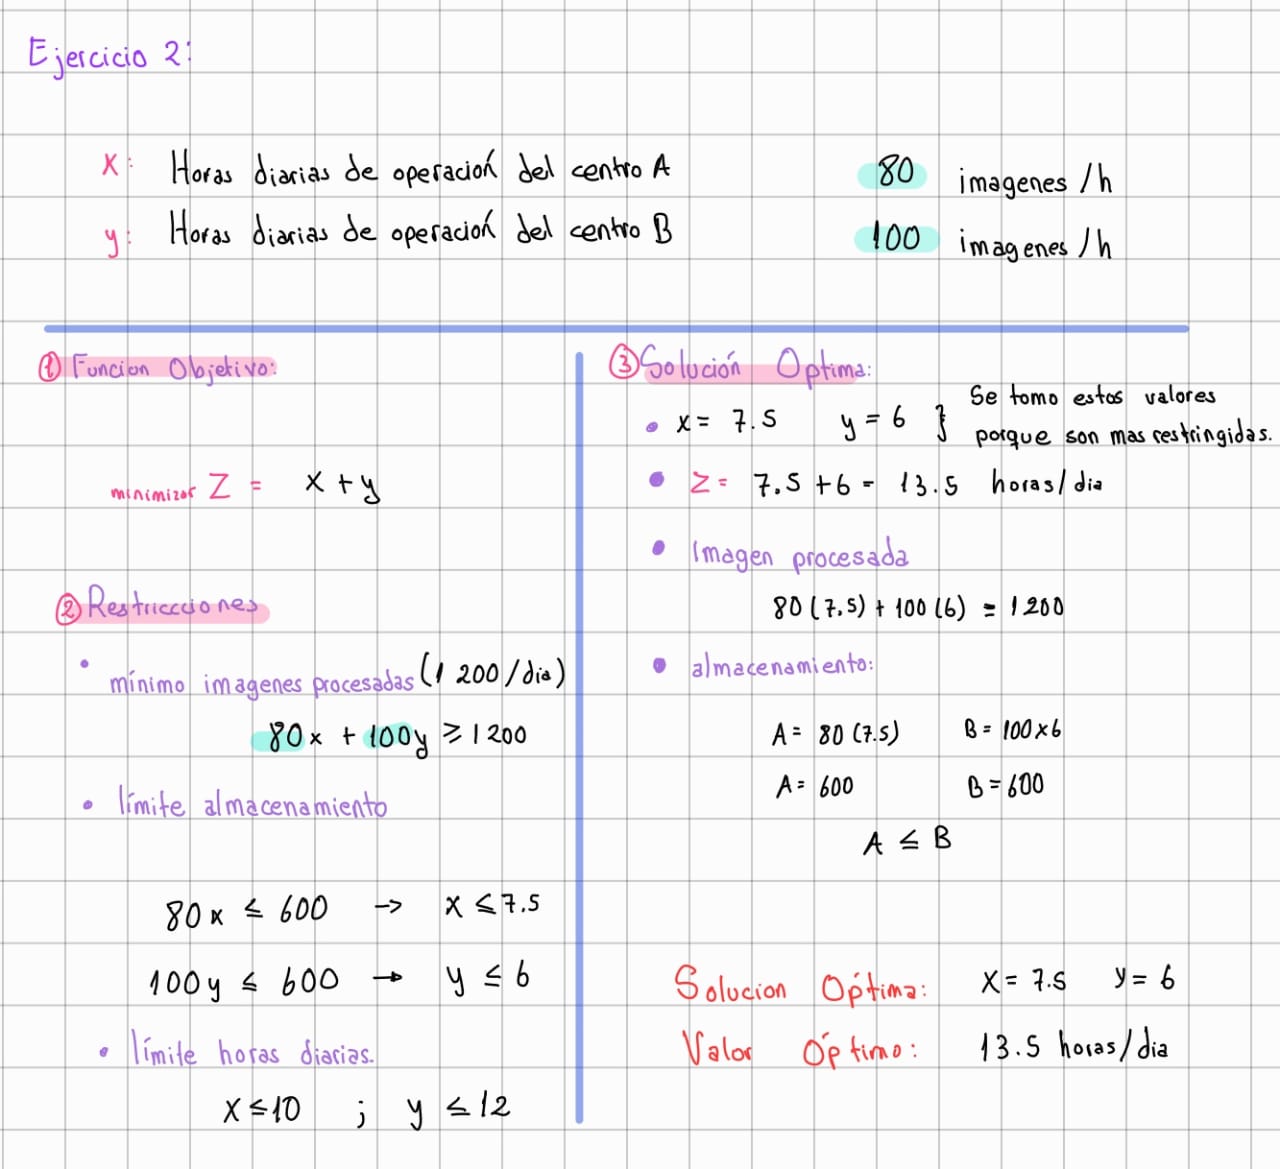 Ejercicio 2:
x: Horas diarias de operación del centro A 80 imagenes /h
y: Horas diarias de operación del centro B 100 imagenes /h
① Funcion Objetivo:
minimizar Z = x + y
② Restricciones
• mínimo imagenes procesadas (1 200/dia)
80x + 100y ≥ 1200
• límite almacenamiento
80x ≤ 600 → x ≤ 7.5
100y ≤ 600 → y ≤ 6
• límite horas diarias.
x ≤ 10 ; y ≤ 12
③ Solución Optima:
• x = 7.5 y = 6 } Se tomo estos valores
porque son mas restringidas.
• Z = 7.5 + 6 = 13.5 horas/dia
• Imagen procesada
80(7.5) + 100(6) = 1200
• almacenamiento:
A = 80(7.5) B = 100x6
A = 600 B = 600
A ≤ B
Solucion Óptima: X = 7.5 y = 6
Valor Óptimo: 13.5 horas/dia